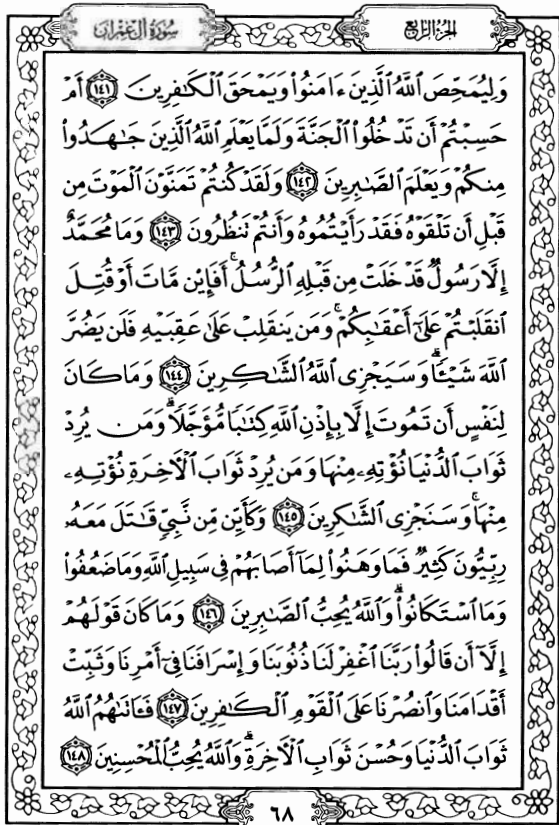 الجزء الرابع
سورة آل عمران
وَلِيُمَحِّصَ ٱللَّهُ ٱلَّذِينَ ءَامَنُوا۟ وَيَمْحَقَ ٱلْكَٰفِرِينَ ﴿١٤١﴾ أَمْ
حَسِبْتُمْ أَن تَدْخُلُوا۟ ٱلْجَنَّةَ وَلَمَّا يَعْلَمِ ٱللَّهُ ٱلَّذِينَ جَٰهَدُوا۟
مِنكُمْ وَيَعْلَمَ ٱلصَّٰبِرِينَ ﴿١٤٢﴾ وَلَقَدْ كُنتُمْ تَمَنَّوْنَ ٱلْمَوْتَ مِن
قَبْلِ أَن تَلْقَوْهُ فَقَدْ رَأَيْتُمُوهُ وَأَنتُمْ تَنظُرُونَ ﴿١٤٣﴾ وَمَا مُحَمَّدٌ
إِلَّا رَسُولٌ قَدْ خَلَتْ مِن قَبْلِهِ ٱلرُّسُلُ ۚ أَفَإِي۟ن مَّاتَ أَوْ قُتِلَ
ٱنقَلَبْتُمْ عَلَىٰٓ أَعْقَٰبِكُمْ ۚ وَمَن يَنقَلِبْ عَلَىٰ عَقِبَيْهِ فَلَن يَضُرَّ
ٱللَّهَ شَيْـًٔا ۗ وَسَيَجْزِى ٱللَّهُ ٱلشَّٰكِرِينَ ﴿١٤٤﴾ وَمَا كَانَ
لِنَفْسٍ أَن تَمُوتَ إِلَّا بِإِذْنِ ٱللَّهِ كِتَٰبًا مُّؤَجَّلًا ۗ وَمَن يُرِدْ
ثَوَابَ ٱلدُّنْيَا نُؤْتِهِۦ مِنْهَا وَمَن يُرِدْ ثَوَابَ ٱلْءَاخِرَةِ نُؤْتِهِۦ
مِنْهَا ۚ وَسَنَجْزِى ٱلشَّٰكِرِينَ ﴿١٤٥﴾ وَكَأَيِّن مِّن نَّبِىٍّ قَٰتَلَ مَعَهُۥ
رِبِّيُّونَ كَثِيرٌ فَمَا وَهَنُوا۟ لِمَآ أَصَابَهُمْ فِى سَبِيلِ ٱللَّهِ وَمَا ضَعُفُوا۟
وَمَا ٱسْتَكَانُوا۟ ۗ وَٱللَّهُ يُحِبُّ ٱلصَّٰبِرِينَ ﴿١٤٦﴾ وَمَا كَانَ قَوْلَهُمْ
إِلَّآ أَن قَالُوا۟ رَبَّنَا ٱغْفِرْ لَنَا ذُنُوبَنَا وَإِسْرَافَنَا فِىٓ أَمْرِنَا وَثَبِّتْ
أَقْدَامَنَا وَٱنصُرْنَا عَلَى ٱلْقَوْمِ ٱلْكَٰفِرِينَ ﴿١٤٧﴾ فَـَٔاتَىٰهُمُ ٱللَّهُ
ثَوَابَ ٱلدُّنْيَا وَحُسْنَ ثَوَابِ ٱلْءَاخِرَةِ ۗ وَٱللَّهُ يُحِبُّ ٱلْمُحْسِنِينَ ﴿١٤٨﴾
٦٨